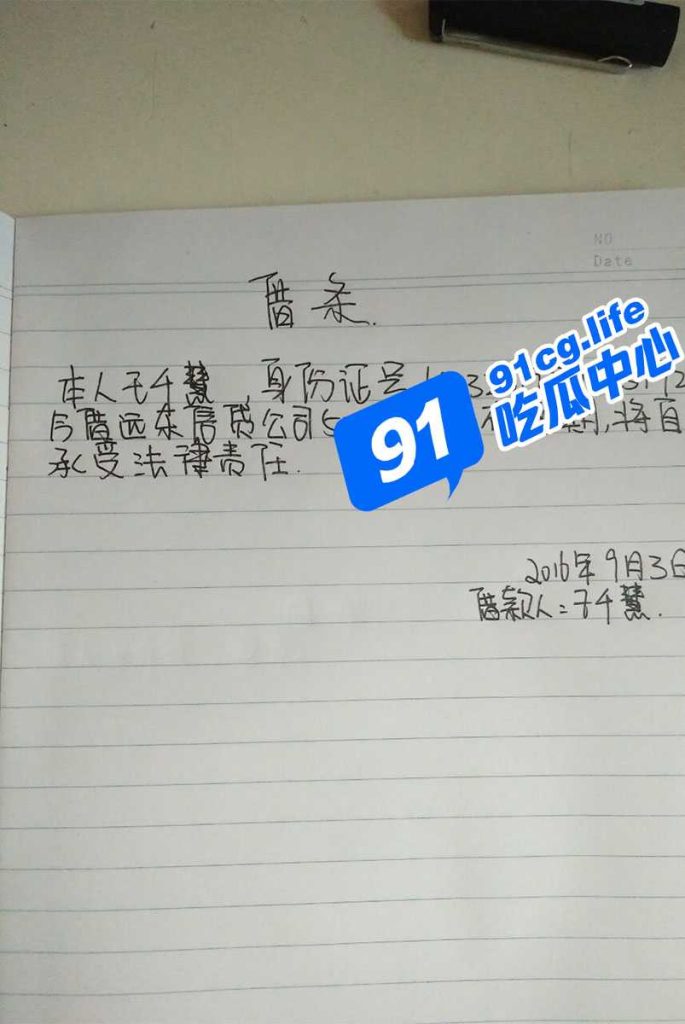 NO
Date
借条.
本人王千慧,身份证号
今借远东信贷公司
承受法律责任.
2016年9月3日
借款人:王千慧.
91cg.life
吃瓜中心
91